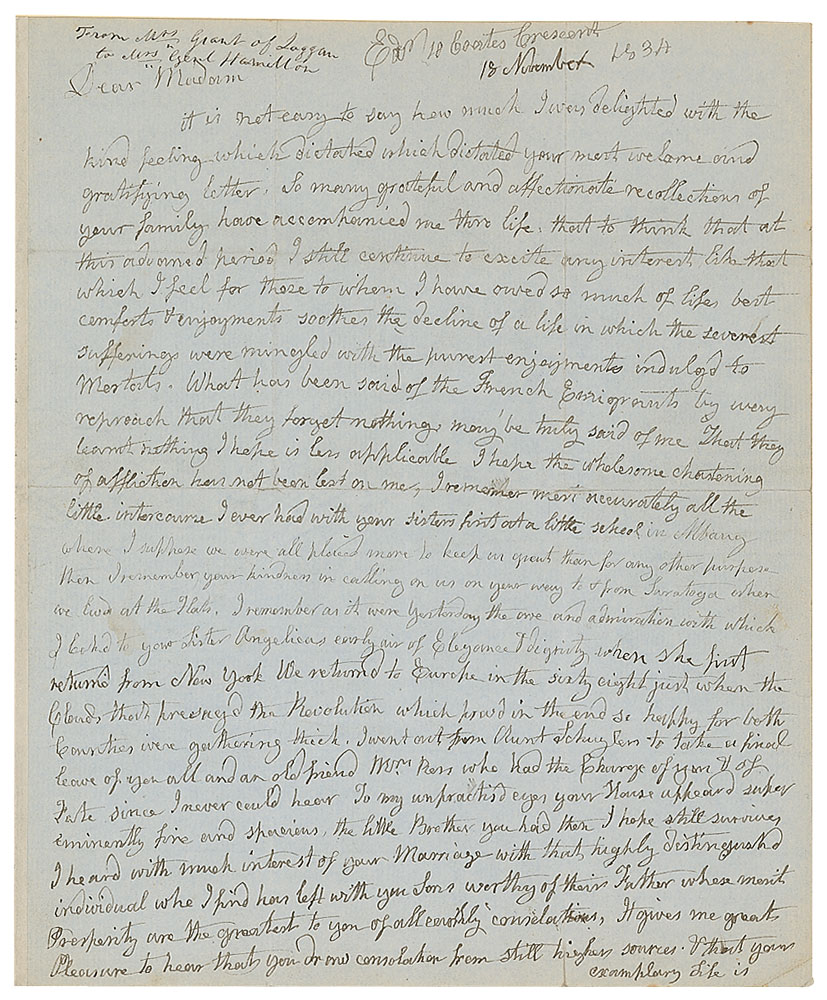 From Mrs Grant of Laggan
to Mrs Genl Hamilton
Edn 18 Coates Crescent
18 November 1834
Dear Madam
it is not easy to say how much I was delighted with the
kind feeling which dictated which dictated your most welcome and
gratifying letter. So many grateful and affectionate recollections of
your family have accompanied me thro life. that to think that at
this advanced period I still continue to excite any interest like that
which I feel for those to whom I have owed so much of lifes best
comforts & enjoyments soothes the decline of a life in which the severest
sufferings were mingled with the purest enjoyments indulgd to
Mortals. What has been said of the French Emigrants by way
reproach that they forget nothing may be truly said of me That they
learnt nothing I hope is less applicable I hope the wholesome chastening
of affliction has not been lost on me, I remember most accurately all the
little intercourse I ever had with your sisters first at a little school in Albany
where I suppose we were all placed more to keep us quiet than for any other purpose
then I remember your kindness in calling on us on your way to & from Saratoga when
we livd at the Flats. I remember as it were yesterday the awe and admiration with which
I lookd to your Sister Angelicas early air of Elegance & dignity when she first
returnd from New York We returnd to Europe in the sixty eight just when the
Clouds that presaged the Revolution which provd in the end so happy for both
Countries were gathering thick. I went out from Aunt Schuylers to take a final
leave of you all and an old friend Ross who had the Charge of you & of
Fate since I never could hear To my unpractisd eyes your House appeard super
eminently fine and spacious, the little Brother you had then I hope still survives
I heard with much interest of your Marriage with that highly distinguishd
individual who I find has left with you Sons worthy of their Father whose merit
Prosperity are the greatest to you of all earthly consolations, It gives me great
Pleasure to hear that you draw consolation from still higher sources. & that your
examplary Life is